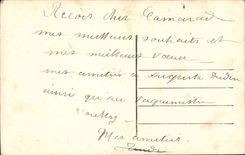 Reçois cher Camarad
mes meilleurs souhaits et
mes meilleurs vœux
mes amitiés a Auguste
ainsi qu'au Vaguemestre
Mes amitiés